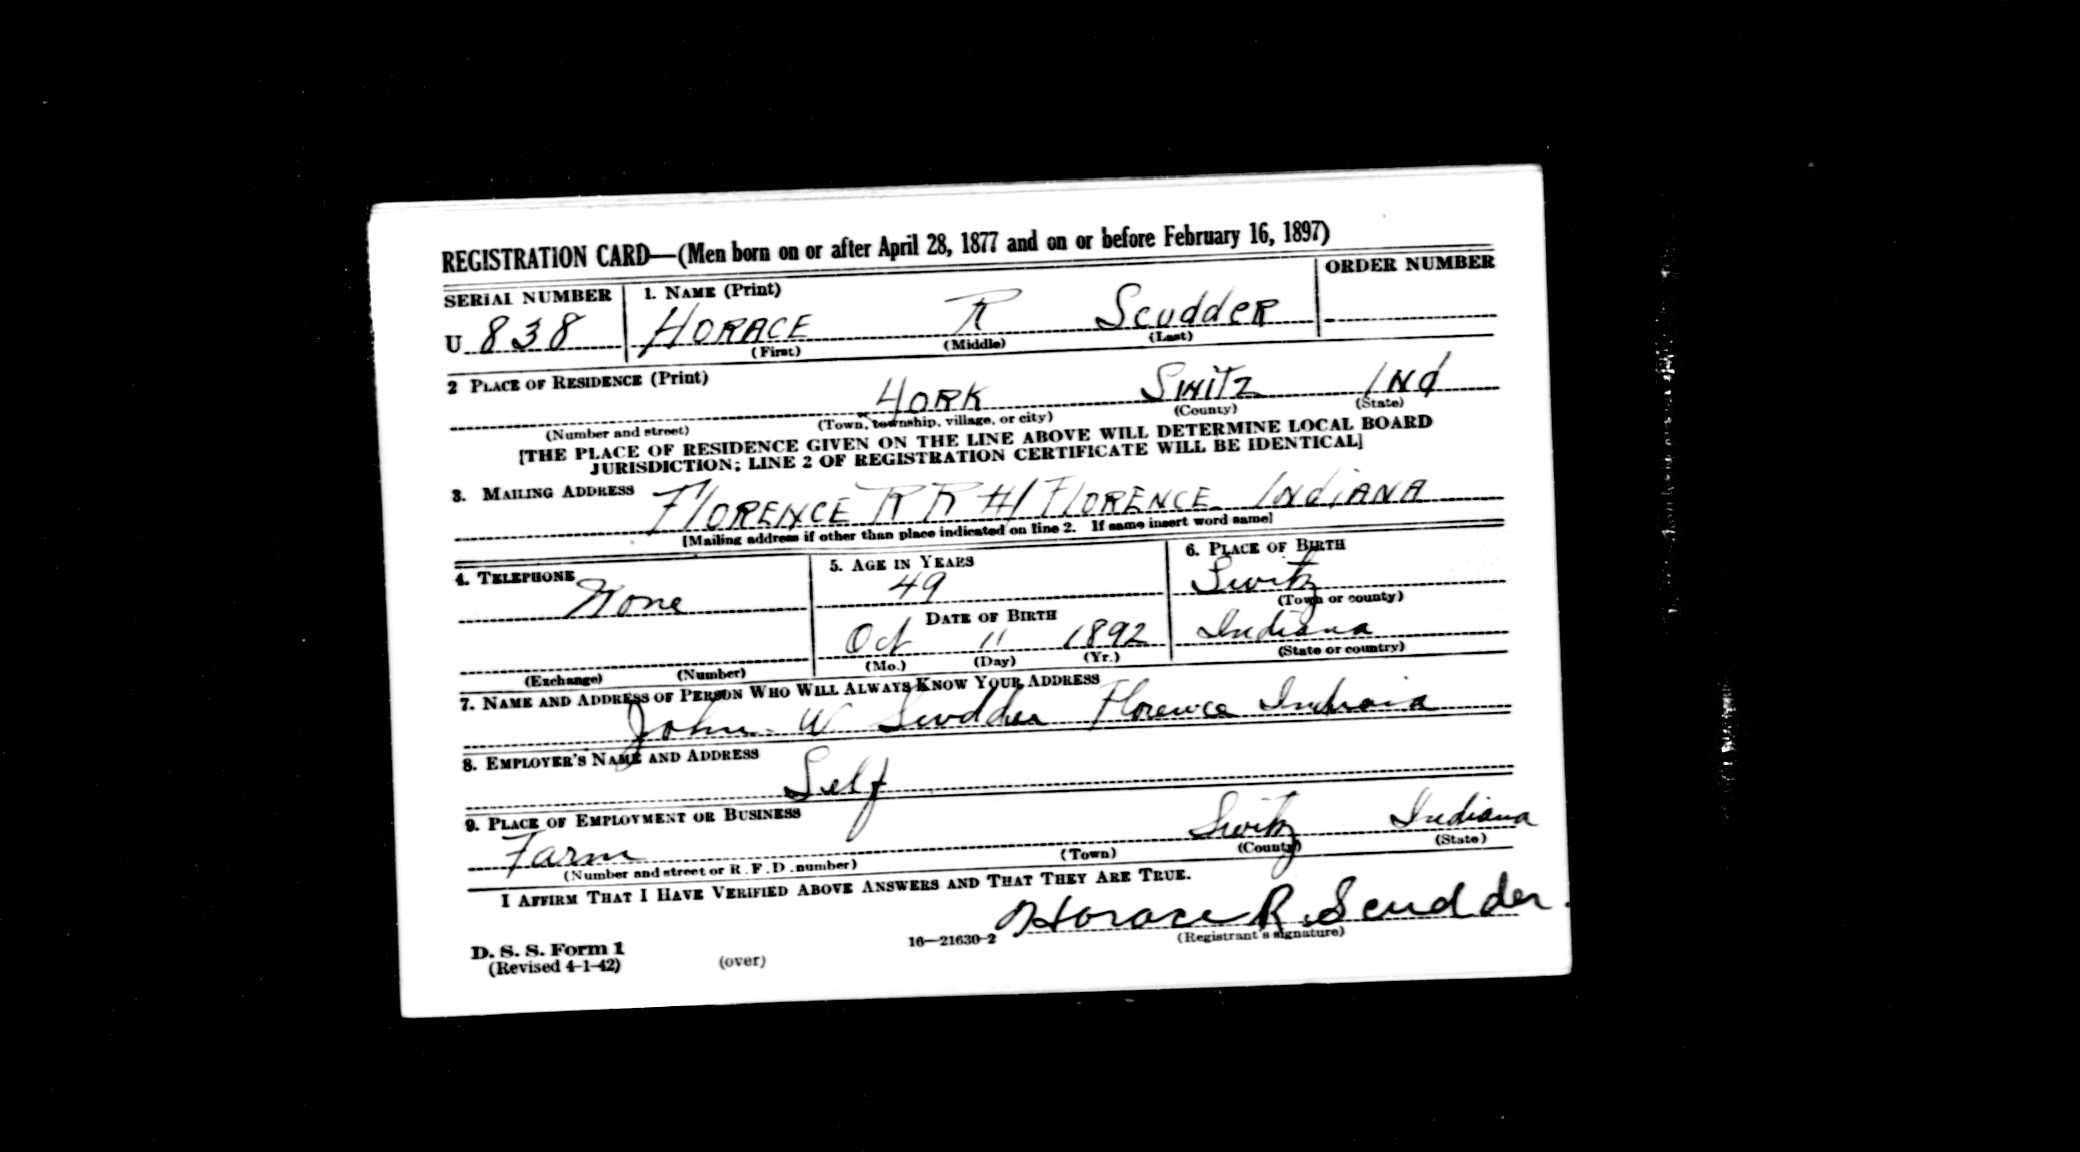 REGISTRATION CARD—(Men born on or after April 28, 1877 and on or before February 16, 1897)
SERIAL NUMBER 1. NAME (Print) ORDER NUMBER
U 838 HORACE R Scudder
(First) (Middle) (Last)
2 PLACE OF RESIDENCE (Print)
YORK Switz Ind
(Number and street) (Town, township, village, or city) (County) (State)
[THE PLACE OF RESIDENCE GIVEN ON THE LINE ABOVE WILL DETERMINE LOCAL BOARD
JURISDICTION; LINE 2 OF REGISTRATION CERTIFICATE WILL BE IDENTICAL]
3. MAILING ADDRESS FLORENCE RR #1 FLORENCE INdiANA
[Mailing address if other than place indicated on line 2. If same insert word same]
4. TELEPHONE 5. AGE IN YEARS 6. PLACE OF BIRTH
None 49 Switz
(Town or county)
DATE OF BIRTH
Oct 11 1892 Indiana
(Exchange) (Number) (Mo.) (Day) (Yr.) (State or country)
7. NAME AND ADDRESS OF PERSON WHO WILL ALWAYS KNOW YOUR ADDRESS
John W Scudder Florence Indiana
8. EMPLOYER'S NAME AND ADDRESS
Self
9. PLACE OF EMPLOYMENT OR BUSINESS
Farm Switz Indiana
(Number and street or R.F.D. number) (Town) (County) (State)
I AFFIRM THAT I HAVE VERIFIED ABOVE ANSWERS AND THAT THEY ARE TRUE.
Horace R. Scudder.
D. S. S. Form 1 16—21630-2 (Registrant's signature)
(Revised 4-1-42) (over)